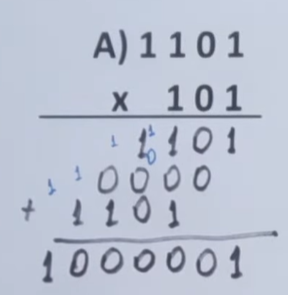 A) 1 1 0 1
x 1 0 1
1 1
1 1 0 1
0
1 1 0 0 0 0
+ 1 1 0 1
1 0 0 0 0 0 1